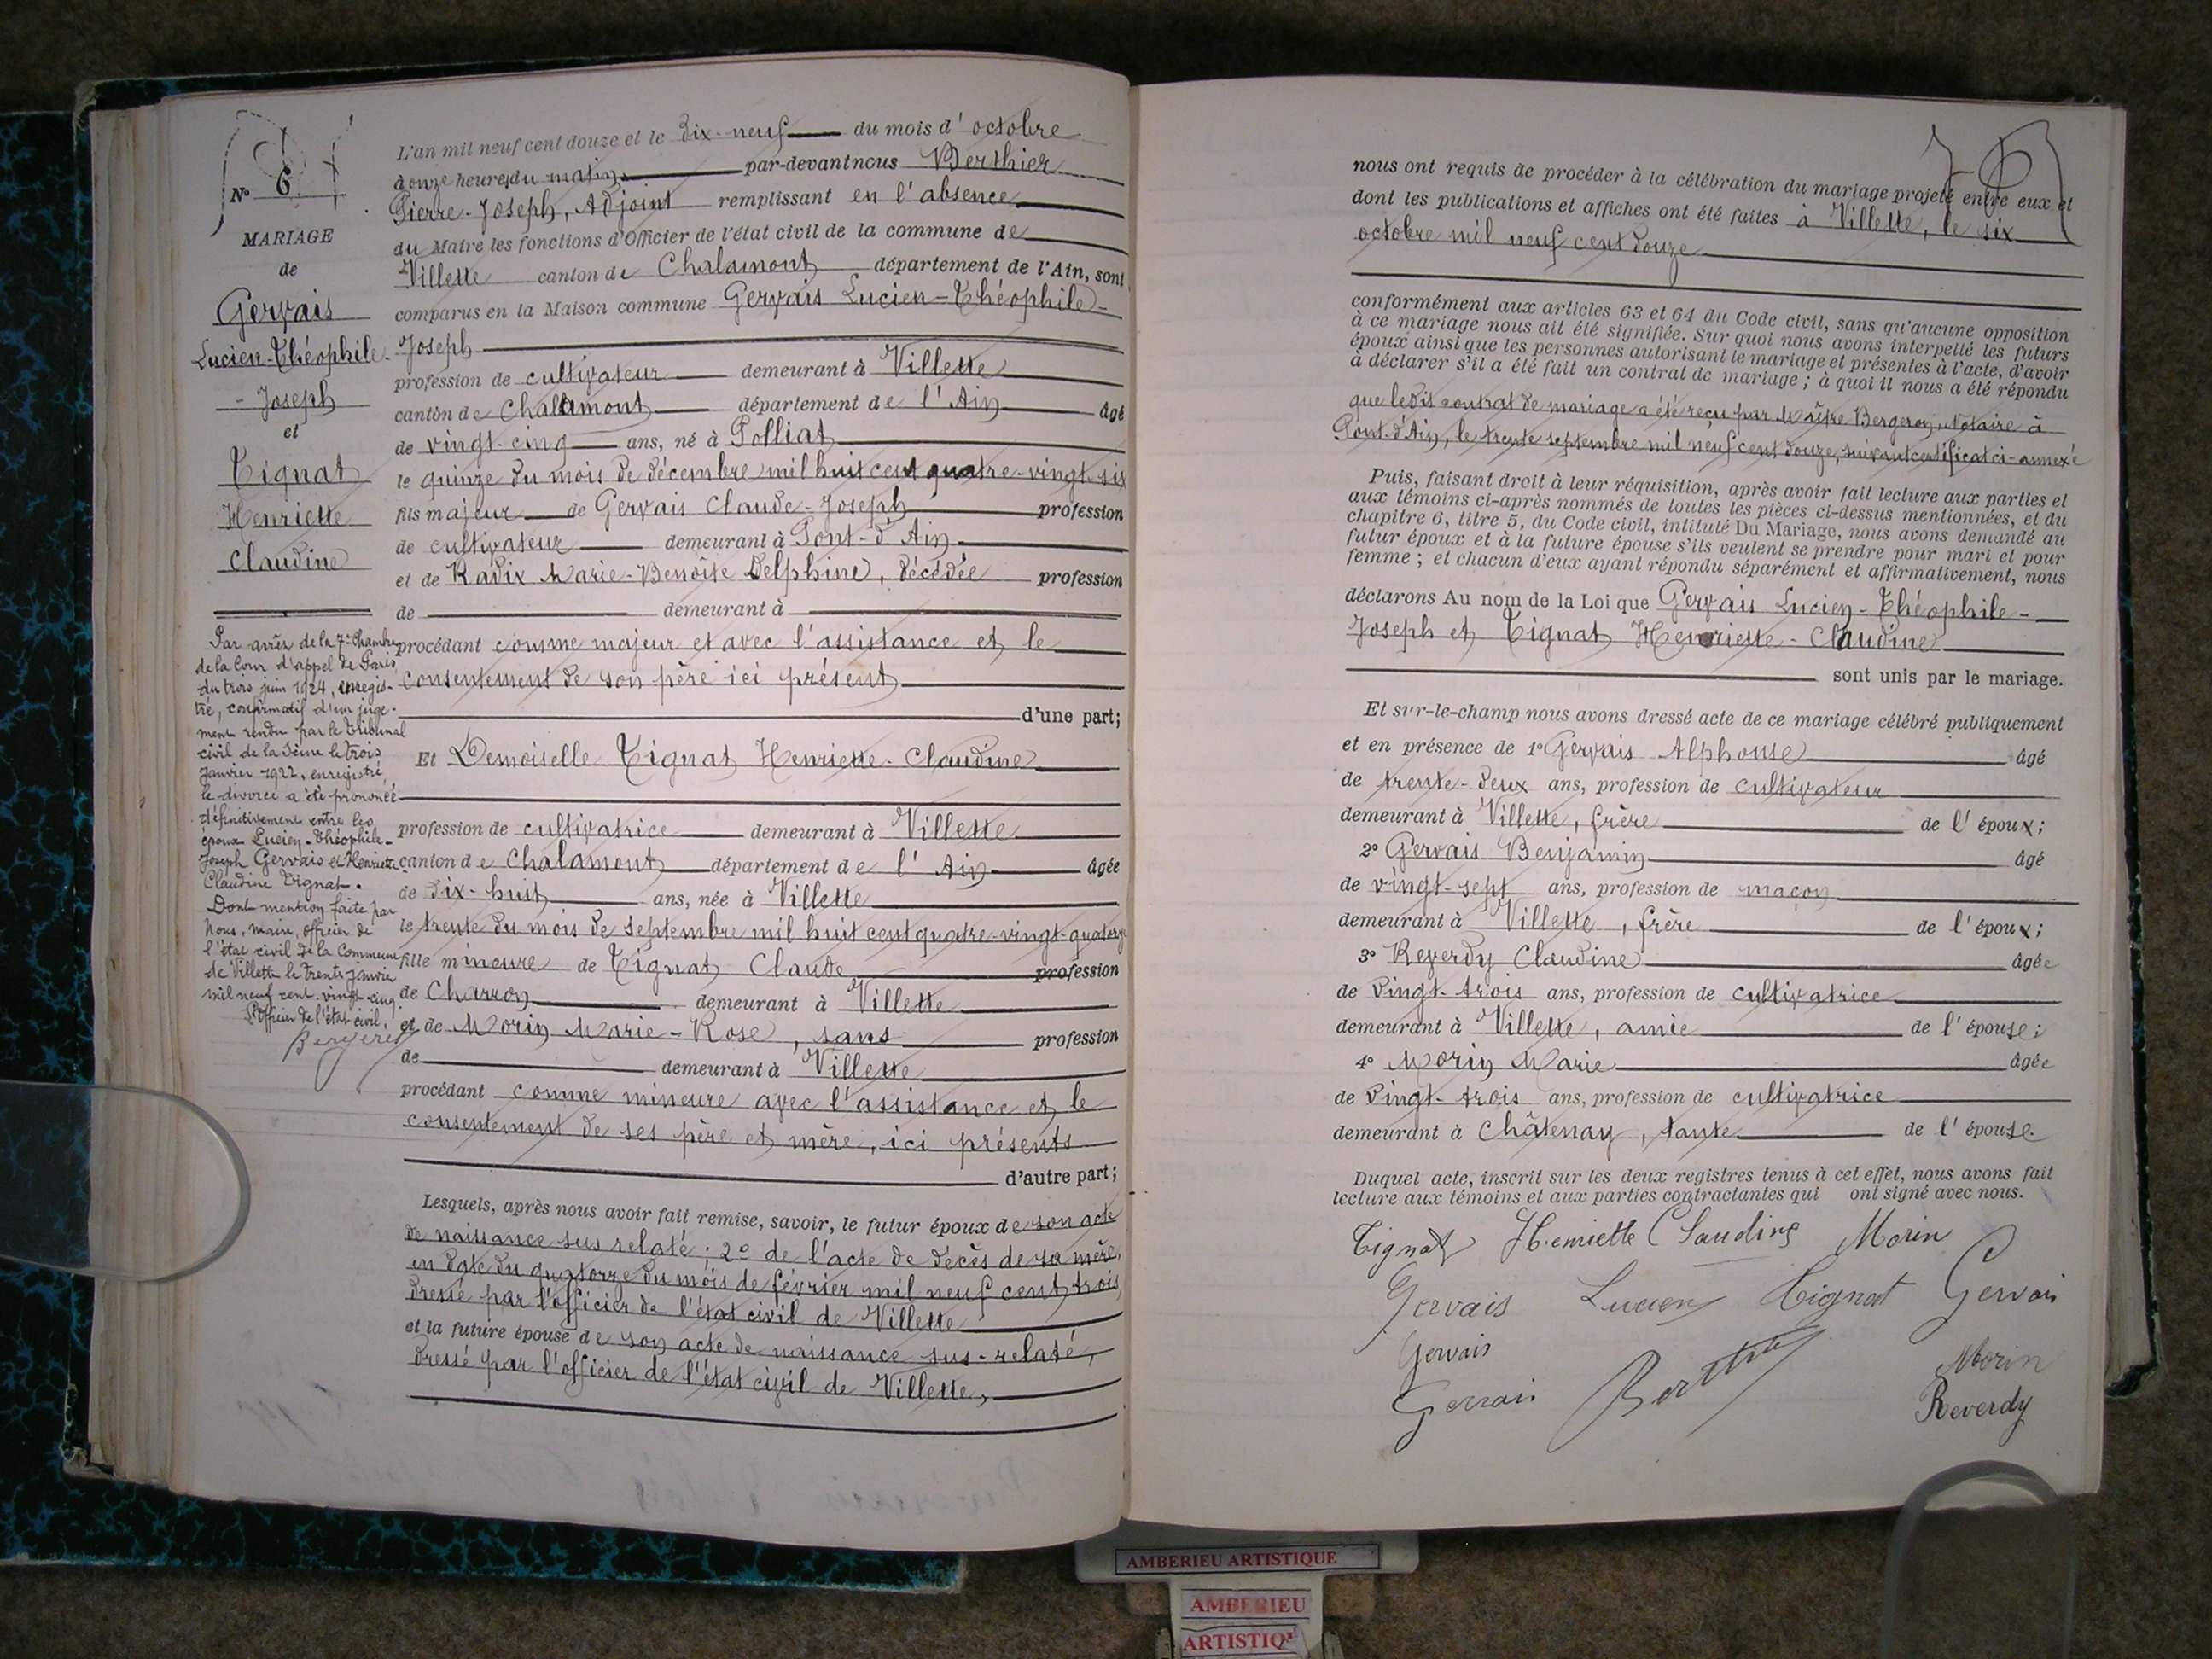 N° 6
MARIAGE
de
Gervais
Lucien-Théophile-
- Joseph
et
Tignat
Henriette
Claudine
Par arrêt de la 7e Chambre
de la Cour d'appel de Paris
du trois juin 1924, enregis-
tré, confirmatif d'un juge-
ment rendu par le Tribunal
civil de la Seine le trois
Janvier 1922, enregistré,
le divorce a été prononcé
définitivement entre les
époux Lucien-Théophile-
Joseph Gervais et Henriette-
Claudine Tignat.
Dont mention faite par
Nous, maire, officier de
l'état civil de la Commune
de Villette le trente janvier
mil neuf cent vingt-cinq
L'officier de l'état civil,
L'an mil neuf cent douze et le dix-neuf du mois d'octobre
à onze heures du matin par-devant nous Berthier
Pierre-Joseph, Adjoint remplissant en l'absence
du Maire les fonctions d'Officier de l'état civil de la commune de
Villette canton de Chalamont département de l'Ain, sont
comparus en la Maison commune Gervais Lucien-Théophile-
Joseph
profession de cultivateur demeurant à Villette
canton de Chalamont département de l'Ain âgé
de vingt-cinq ans, né à Polliat
le quinze du mois de décembre mil huit cent quatre-vingt-six
fils majeur de Gervais Claude-Joseph profession
de cultivateur demeurant à Pont-d'Ain
et de Radix Marie-Benoîte Delphine, décédée profession
de demeurant à
procédant comme majeur et avec l'assistance et le
consentement de son père ici présent
d'une part;
Et Demoiselle Tignat Henriette-Claudine
profession de cultivatrice demeurant à Villette
canton de Chalamont département de l'Ain âgée
de dix-huit ans, née à Villette
le trente du mois de septembre mil huit cent quatre-vingt-quatorze
fille mineure de Tignat Claude profession
de Charron demeurant à Villette
et de Morin Marie-Rose, sans profession
de demeurant à Villette
procédant comme mineure avec l'assistance et le
consentement de ses père et mère, ici présents
d'autre part;
Lesquels, après nous avoir fait remise, savoir, le futur époux de son acte
de naissance sus relaté; 2° de l'acte de décès de sa mère,
en date du quatorze du mois de février mil neuf cent trois,
dressé par l'officier de l'état civil de Villette
et la future épouse de son acte de naissance sus-relaté,
dressé par l'officier de l'état civil de Villette,
nous ont requis de procéder à la célébration du mariage projeté entre eux et
dont les publications et affiches ont été faites à Villette, le six
octobre mil neuf cent douze
conformément aux articles 63 et 64 du Code civil, sans qu'aucune opposition
à ce mariage nous ait été signifiée. Sur quoi nous avons interpellé les futurs
époux ainsi que les personnes autorisant le mariage et présentes à l'acte, d'avoir
à déclarer s'il a été fait un contrat de mariage; à quoi il nous a été répondu
que ledit contrat de mariage a été reçu par Maître Bergeron, Notaire à
Pont-d'Ain, le trente septembre mil neuf cent douze, suivant certificat ci-annexé
Puis, faisant droit à leur réquisition, après avoir fait lecture aux parties et
aux témoins ci-après nommés de toutes les pièces ci-dessus mentionnées, et du
chapitre 6, titre 5, du Code civil, intitulé Du Mariage, nous avons demandé au
futur époux et à la future épouse s'ils veulent se prendre pour mari et pour
femme; et chacun d'eux ayant répondu séparément et affirmativement, nous
déclarons Au nom de la Loi que Gervais Lucien-Théophile-
Joseph et Tignat Henriette-Claudine
sont unis par le mariage.
Et sur-le-champ nous avons dressé acte de ce mariage célébré publiquement
et en présence de 1° Gervais Alphonse âgé
de trente-deux ans, profession de cultivateur
demeurant à Villette, frère de l'époux;
2° Gervais Benjamin âgé
de vingt-sept ans, profession de maçon
demeurant à Villette, frère de l'époux;
3° Reverdy Claudine âgée
de vingt-trois ans, profession de cultivatrice
demeurant à Villette, amie de l'épouse;
4° Morin Marie âgée
de vingt-trois ans, profession de cultivatrice
demeurant à Châtenay, tante de l'épouse.
Duquel acte, inscrit sur les deux registres tenus à cet effet, nous avons fait
lecture aux témoins et aux parties contractantes qui ont signé avec nous.
Tignat Henriette Claudine Morin
Gervais Lucien Tignat Gervais
Gervais Morin
Gervais Berthier Reverdy
AMBERIEU ARTISTIQUE
AMBERIEU
ARTISTIQ